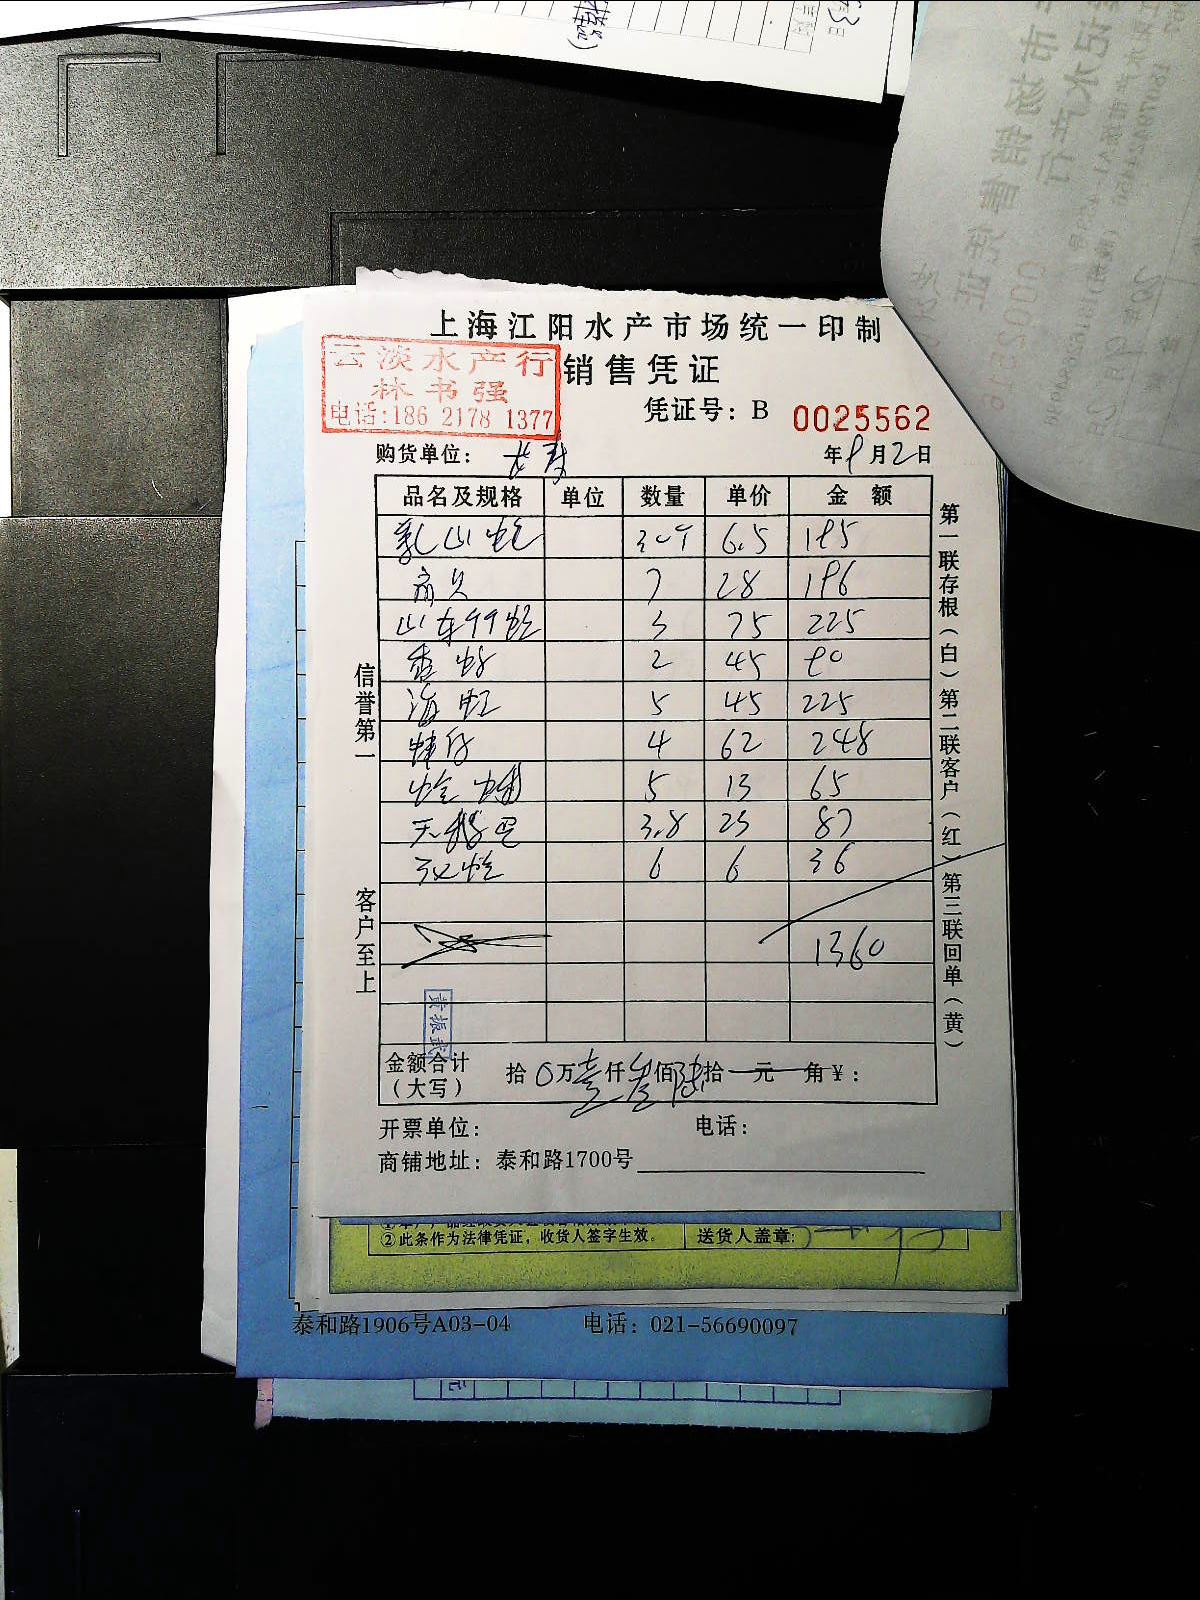 上海江阳水产市场统一印制
销售凭证
云淡水产行
林书强
电话:186 2178 1377
凭证号：B 0025562
购货单位：
年8月2日
品名及规格 单位 数量 单价 金额
乳山蛤 30斤 6.5 195
扇贝 7 28 196
山东竹蛏 3 75 225
香螺 2 45 90
海虹 5 45 225
4 62 248
5 13 65
天鹅蛋 3.8 23 87
6 6 36
1360
黄振武
金额合计
（大写）
拾0万壹仟叁佰陆拾 元 角￥：
开票单位： 电话：
商铺地址：泰和路1700号
信誉第一
客户至上
第一联存根（白）第二联客户（红）第三联回单（黄）
②此条作为法律凭证，收货人签字生效。 送货人盖章:
泰和路1906号A03-04 电话：021-56690097